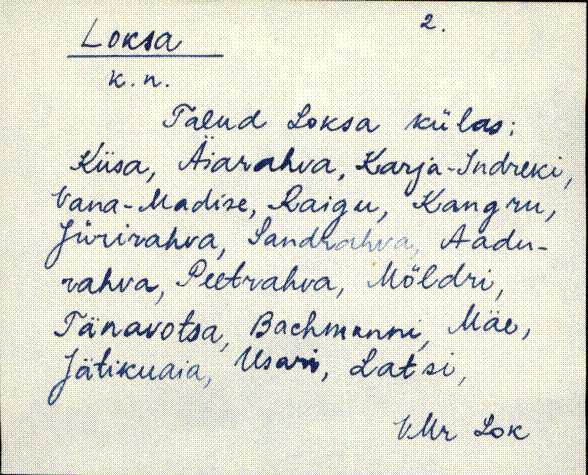 2.
Loksa
k. n.
Talud Loksa külas:
Kiisa, Äiarahva, Karja-Indreki,
Vana-Madise, Raigu, Kangru,
Jürirahva, Sandrahva, Aadu-
rahva, Peetrahva, Möldri,
Tänavotsa, Bachmanni, Mäe,
Jätikuaia, Usari, Latsi,
VMr Lok